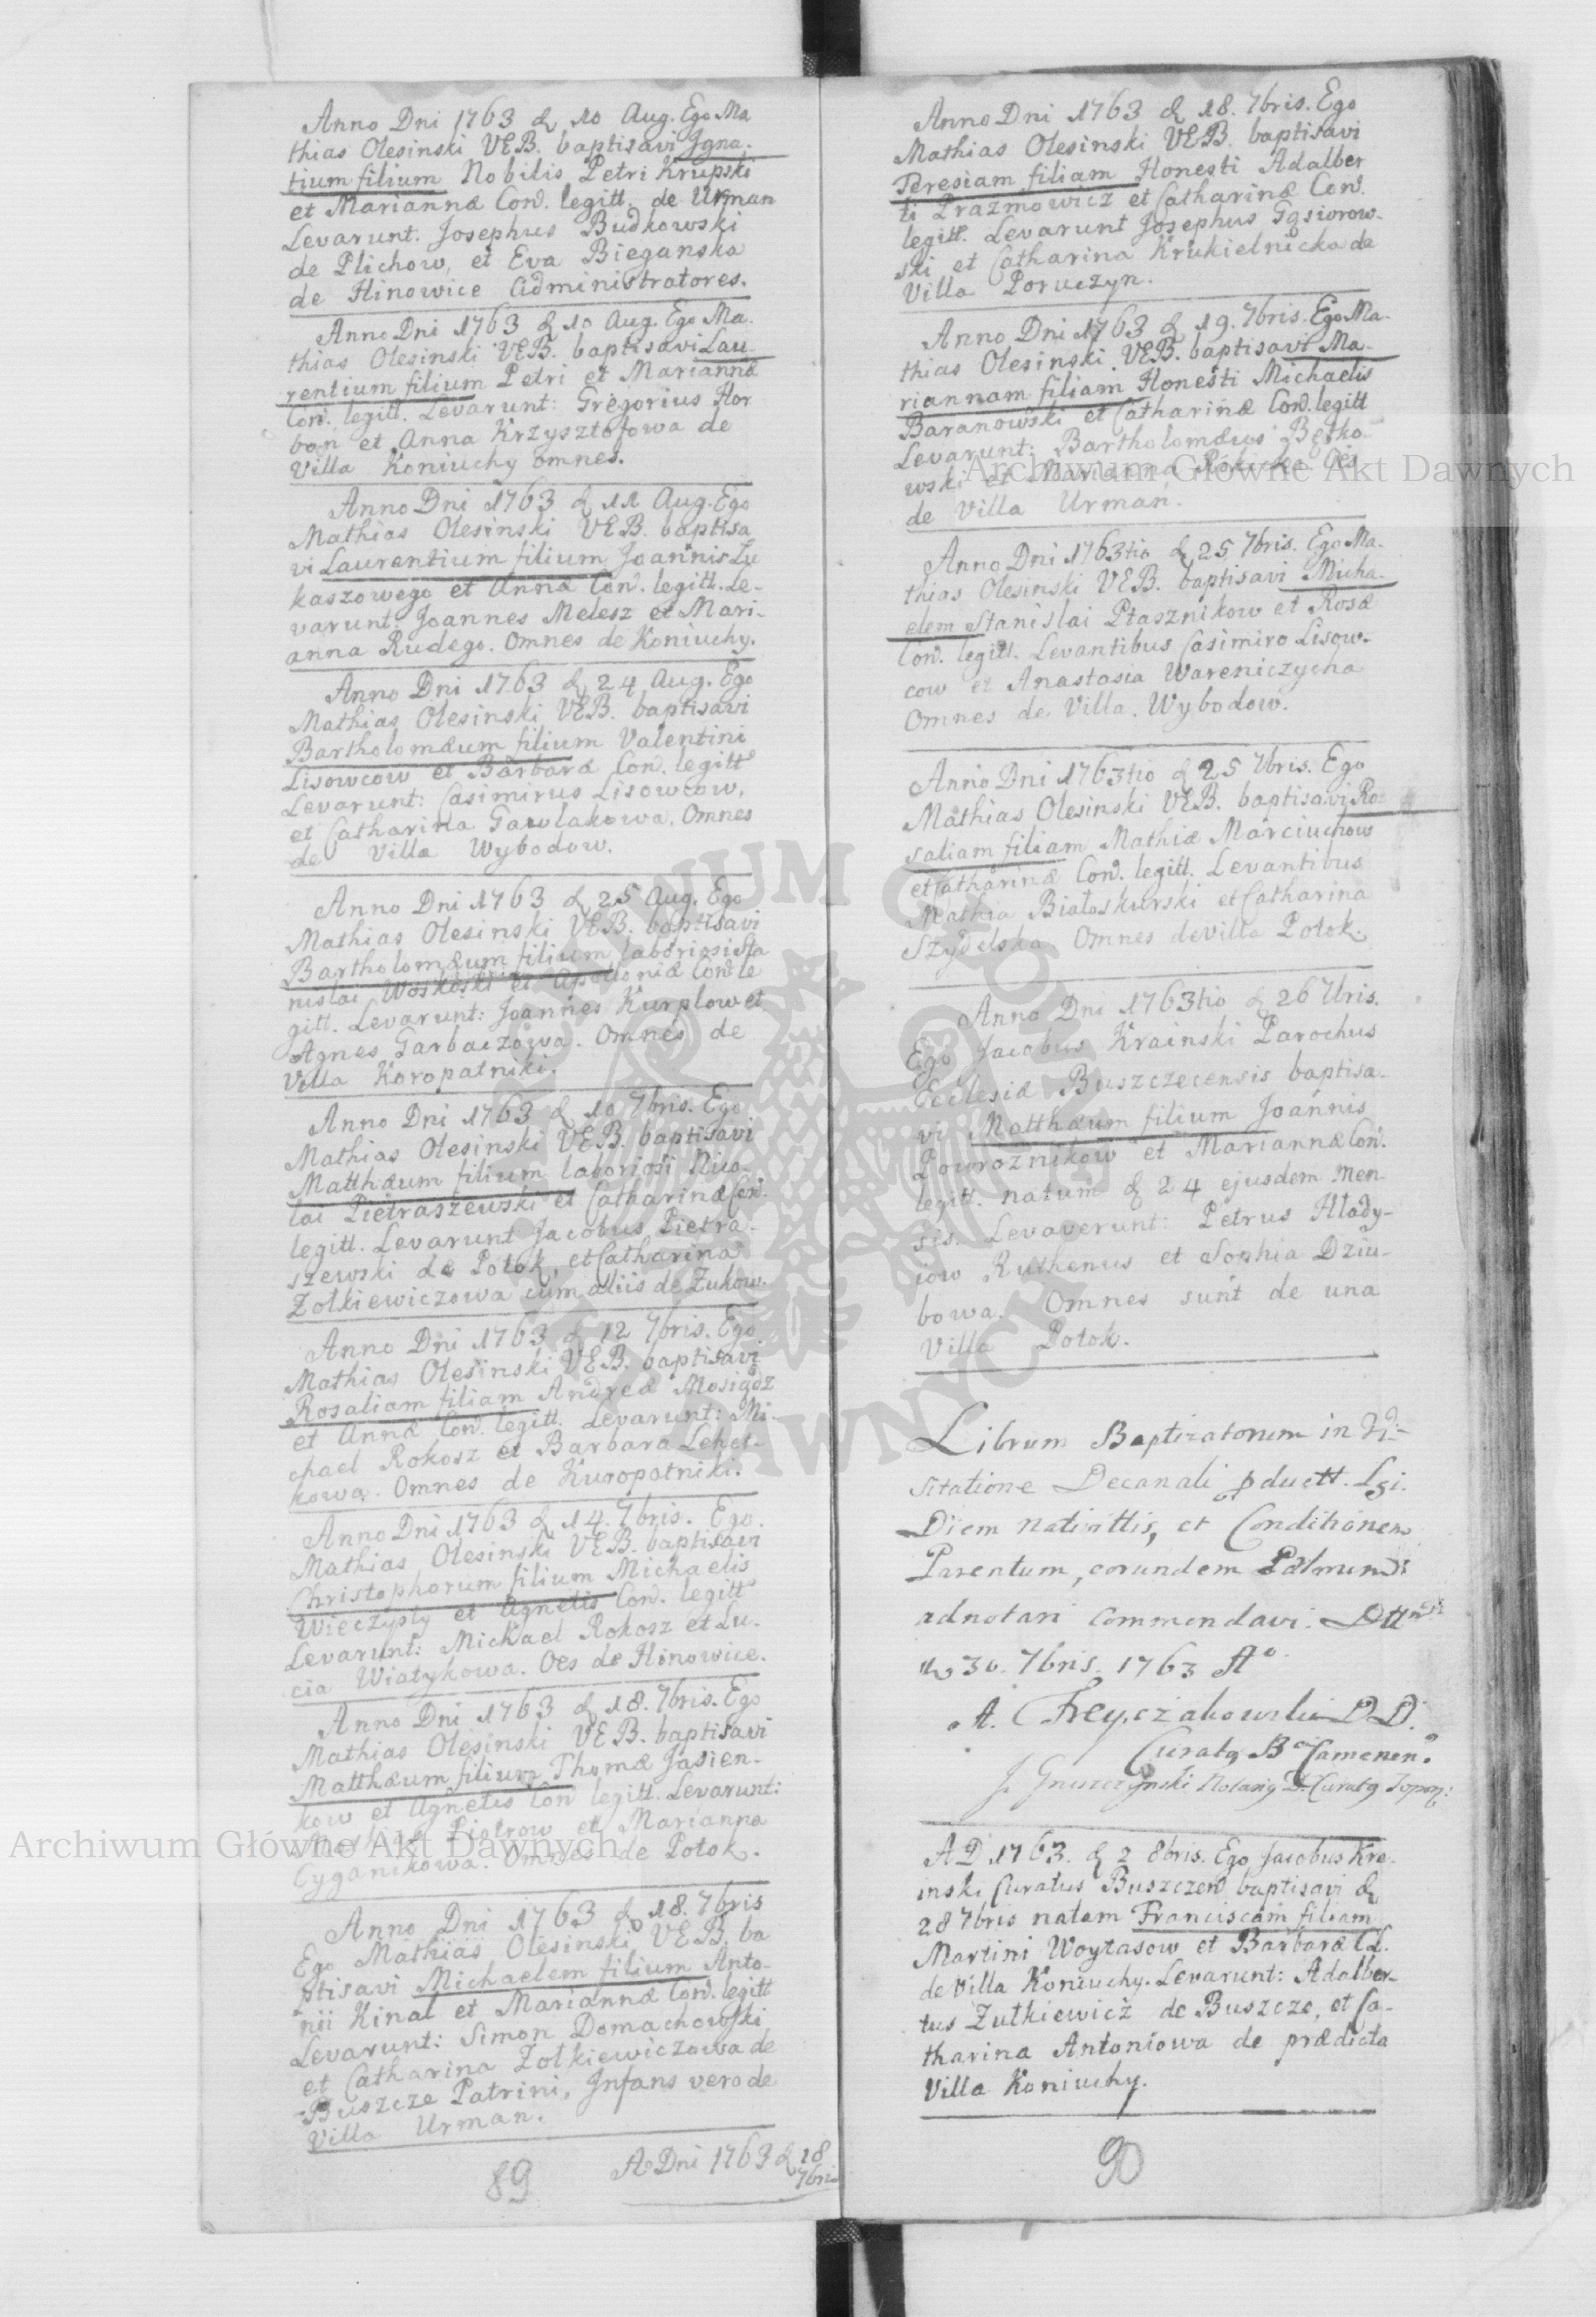 Anno Dni 1763 d 10 Aug. Ego Ma
thias Olesinski VEB. baptisavi Igna-
tium filium Nobilis Petri Krupski
et Mariannæ Con. legitt. de Urman
Levarunt. Josephus Budkowski
de Plichow, et Eva Bieganska
de Hinowice Administratores.
Anno Dni 1763 d 10 Aug. Ego Ma-
thias Olesinski VEB. baptisavi Lau-
rentium filium Petri et Mariannæ
Con. legitt. Levarunt: Gregorius Hor
ban et Anna Krzysztofowa de
Villa Koniuchy omnes.
Anno Dni 1763 d 11 Aug. Ego
Mathias Olesinski VEB. baptisa
vi Laurentium filium Joannis Lu
kaszowego et Annæ Con. legitt. Le-
varunt: Joannes Melesz et Mari-
anna Rudego. Omnes de Koniuchy.
Anno Dni 1763 d 24 Aug. Ego
Mathias Olesinski VEB. baptisavi
Bartholomæum filium Valentini
Lisowcow et Barbaræ Con. legitt
Levarunt: Casimirus Lisowcow,
et Catharina Gawlakowa. Omnes
de Villa Wybodow.
Anno Dni 1763 d 25 Aug. Ego
Mathias Olesinski VEB. baptisavi
Bartholomæum filium laboriosi Sta
nislai Woskoski et Apolloniæ Con le
gitt. Levarunt: Joannes Kurplow et
Agnes Garbaczowa. Omnes de
Villa Koropatniki.
Anno Dni 1763 d 10 7bris. Ego
Mathias Olesinski VEB. baptisavi
Matthæum filium laboriosi Nico-
lai Pietraszewski et Catharinæ Con.
legitt. Levarunt Jacobus Pietra-
szewski de Potok, et Catharina
Zołkiewiczowa cum aliis de Zukow.
Anno Dni 1763 d 12 7bris. Ego
Mathias Olesinski VEB. baptisavi
Rosaliam filiam Andreæ Mosiądz
et Annæ Con. legitt. Levarunt: Mi-
chael Rokosz et Barbara Lehet-
kowa. Omnes de Kuropatniki.
Anno Dni 1763 d 14. 7bris. Ego
Mathias Olesinski VEB. baptisavi
Christophorum filium Michaelis
Wieczysty et Agnetis Con. legitt
Levarunt: Michael Rokosz et Lu-
cia Wiatykowa. Oes de Hinowice.
Anno Dni 1763 d 18. 7bris. Ego
Mathias Olesinski VEB. baptisavi
Matthæum filium Thomæ Jasien-
kow et Agnetis Con legitt. Levarunt:
Piotrow et Marianna
Cyganikowa. Omnes de Potok.
Anno Dni 1763 d 18. 7bris
Ego Mathias Olesinski VEB. ba
ptisavi Michaelem filium Anto-
nii Kinal et Mariannæ Con. legitt
Levarunt: Simon Domachowski
et Catharina Zołkiewiczowa de
Buszcze Patrini, Infans vero de
Villa Urman.
89 A Dni 1763 d 18
7bris
Anno Dni 1763 d 18. 7bris. Ego
Mathias Olesinski VEB. baptisavi
Teresiam filiam Honesti Adalber
ti Prazmowicz et Catharinæ Con.
legitt. Levarunt Josephus Gąsiorow-
ski et Catharina Krukielnicka de
Villa Poruczyn.
Anno Dni 1763 d 19. 7bris. Ego Ma-
thias Olesinski. VEB. baptisavi Ma-
riannam filiam Honesti Michaelis
Baranowski et Catharinæ Con. legitt
Levarunt: Bartholomæus Bętko-
wski et Marianna Rokicka Oes
de Villa Urman.
Anno Dni 1763tio d 25 7bris. Ego Ma-
thias Olesinski VEB. baptisavi Micha-
elem Stanislai Ptasznikow et Rosæ
Con. legitt. Levantibus Casimiro Lisow-
cow et Anastasia Wareniczycha
Omnes de Villa. Wybodow.
Anno Dni 1763tio d 25 7bris. Ego
Mathias Olesinski VEB. baptisavi Ro-
saliam filiam Mathiæ Marciuchow
et Catharinæ Con. legitt. Levantibus
Mathia Białoskurski et Catharina
Szydelska Omnes de villa Potok.
Anno Dni 1763tio d 26 7bris.
Ego Jacobus Krainski Parochus
Ecclesiæ Buszczecensis baptisa-
vi Matthæum filium Joannis
Powroznikow et Mariannæ Con.
legitt. natum d 24 ejusdem Men
sis. Levaverunt: Petrus Hlady-
iow Ruthenus et Sophia Dziu-
bowa. Omnes sunt de una
Villa Potok.
Librum Baptizatorum in Vi-
sitatione Decanali pductt. Lgi.
Diem nativittis, et Conditionem
Parentum, eorundem
adnotari commendavi.
30. 7bris. 1763 Ao.
A. DD.
Curatg B Camenen.
J. Gnuszczynski Notarig D. Curatg
A D 1763. d 2 8bris. Ego Jacobus Kra-
inski Curatus Buszczen baptisavi d
28 7bris natam Franciscam filiam
Martini Woytasow et Barbaræ CL.
de Villa Koniuchy. Levarunt: Adalber-
tus Zułkiewicz de Buszcze, et Ca-
tharina Antoniowa de prædicta
Villa Koniuchy.
90
Archiwum Główne Akt Dawnych
Archiwum Główne Akt Dawnych
ARCHIWUM GŁÓWNE AKT DAWNYCH